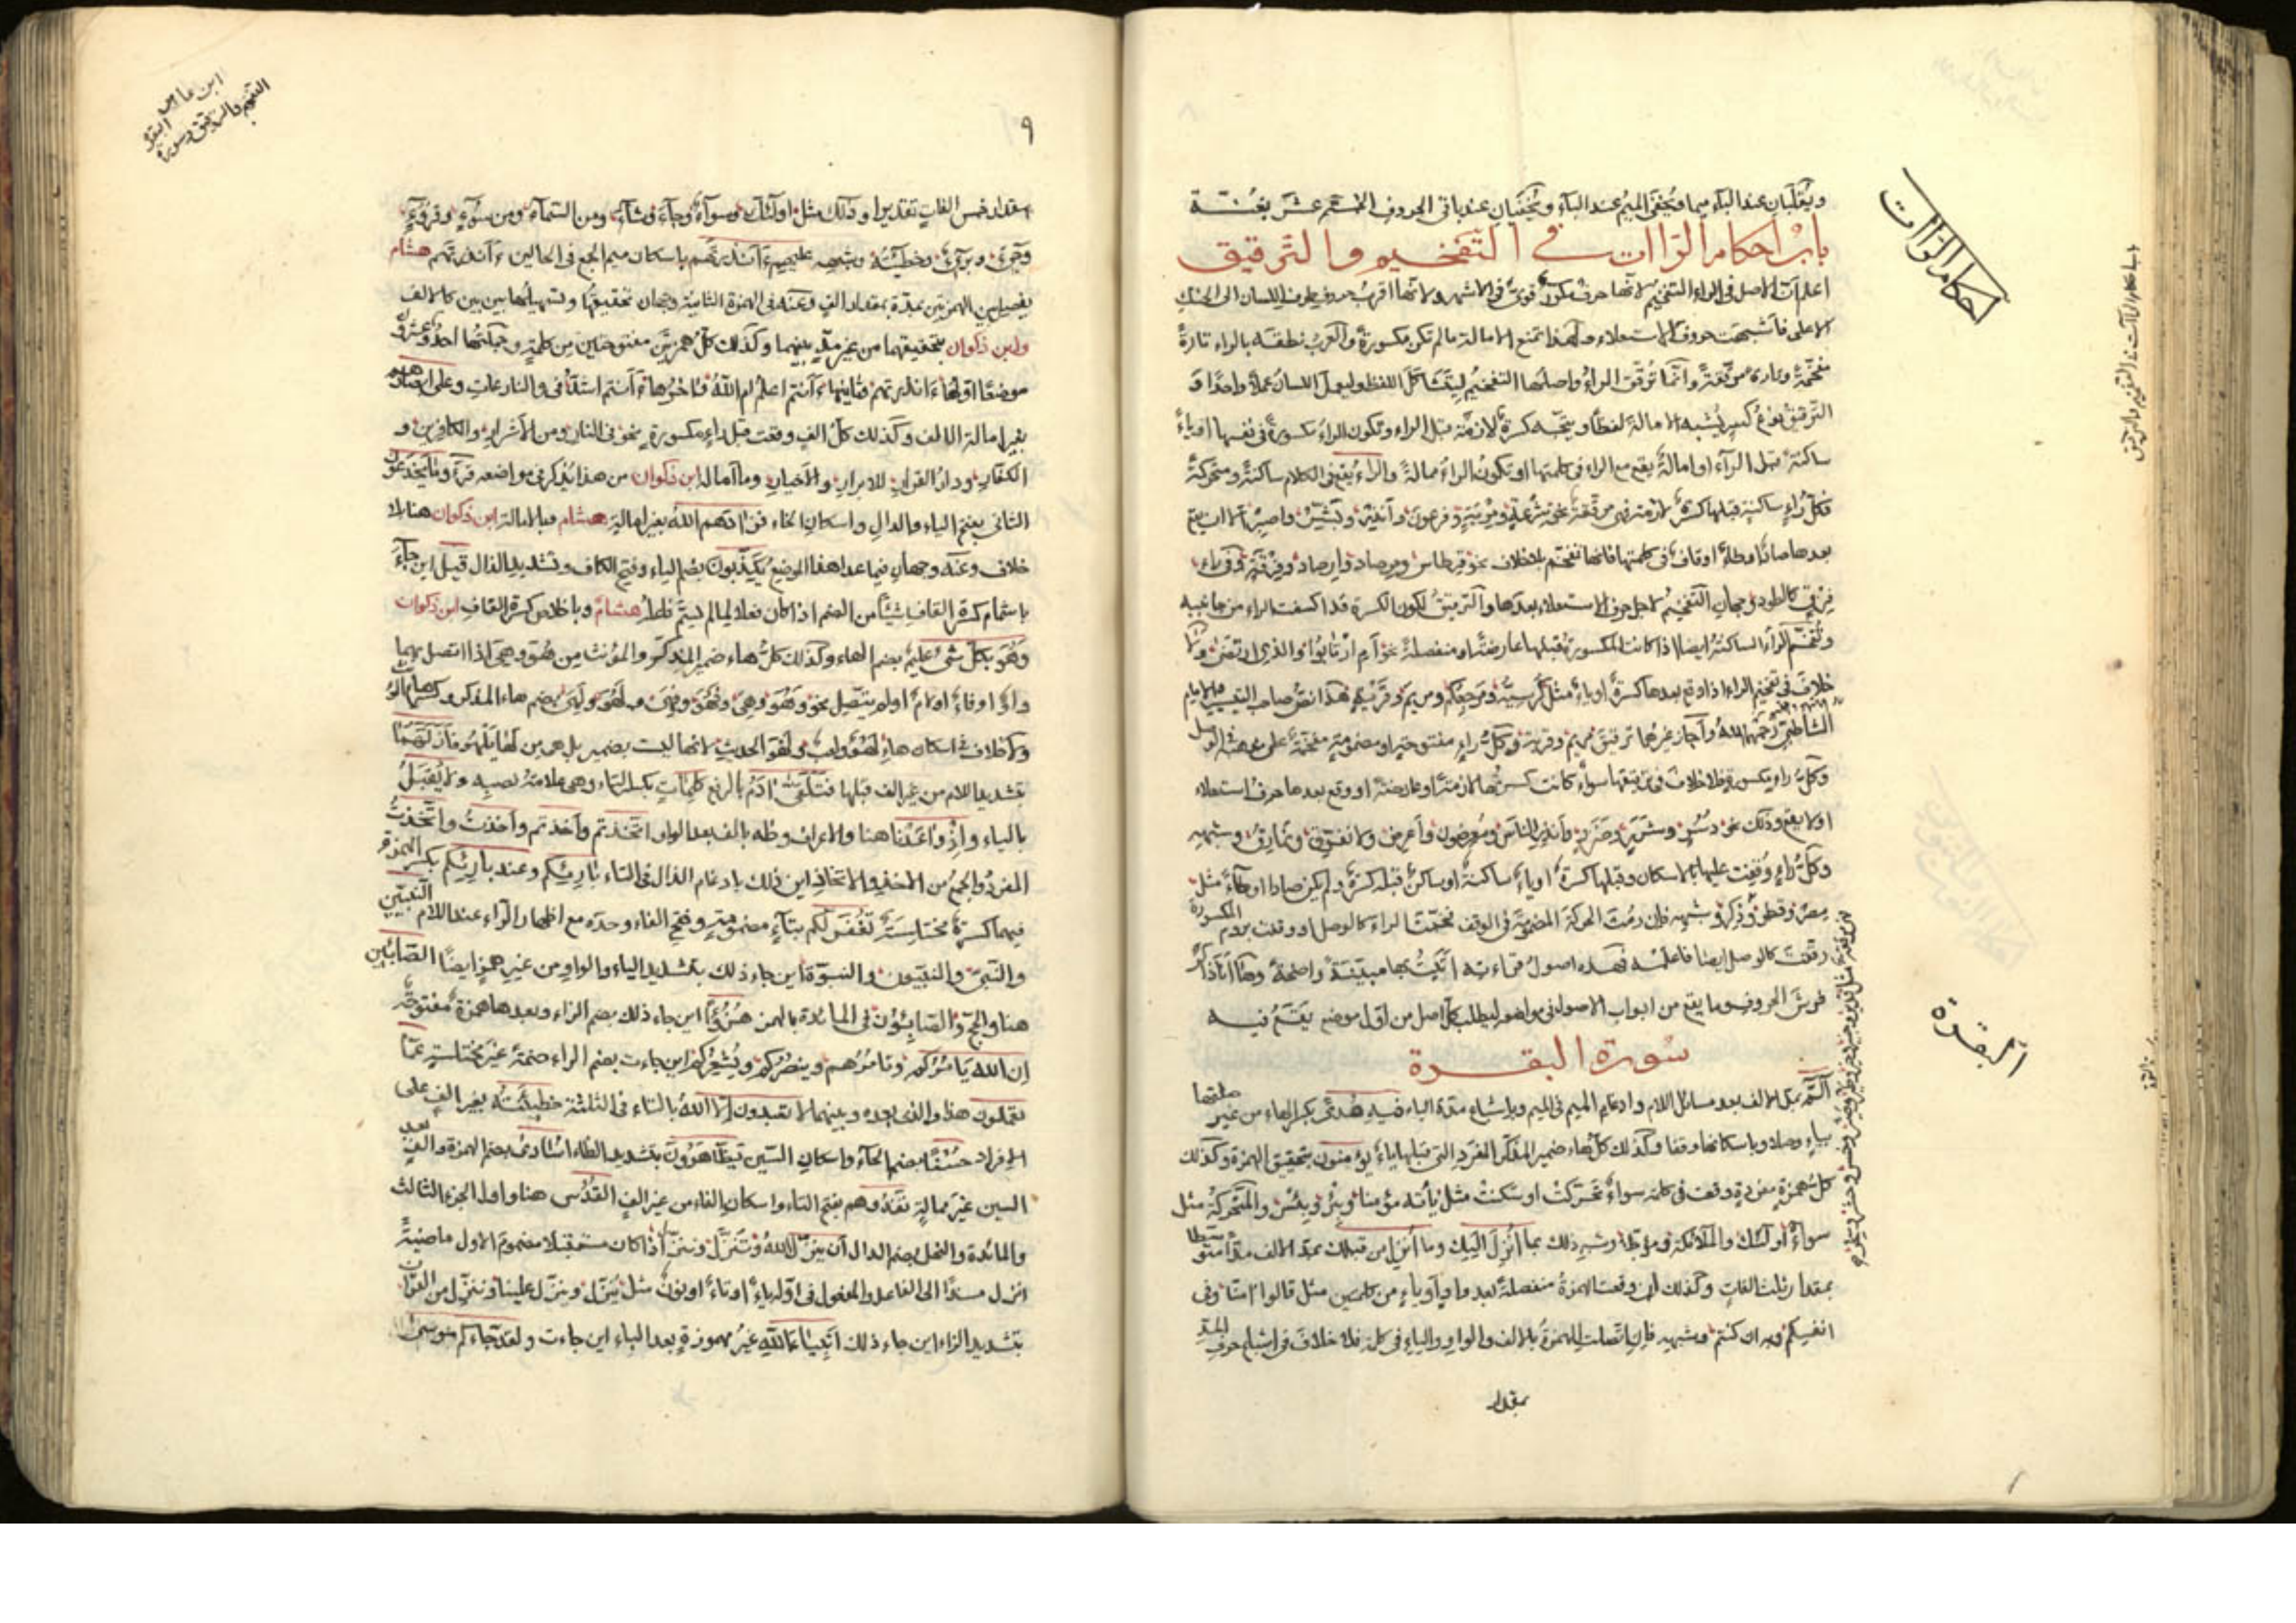 احكام الراات
ويقلبان عند الباء ميما وتخفى الميم عند الباء ويخفيان عند باقى الحروف الخمسة عشر بغنة
باب احكام الراات فى التفخيم والترقيق
اعلم ان الاصل فى الراء التفخيم لانها حرف مكرر قوى فى الاشهر ولانها اقرب حروف طرف اللسان الى الحنك
الاعلى فاشبهت حروف الاستعلاء ولهذا تمنع الامالة ما لم تكن مكسورة والعرب نطقت بالراء تارة
مفخمة وتارة مرققة وانما ترقق الراء واصلها التفخيم ليتشاكل اللفظ وليعمل اللسان عملا واحدا و
الترقيق نوع كسر يشبه الامالة لفظا ويتجه كسرة لازمة قبل الراء وتكون الراء مكسورة فى نفسها او ياء
ساكنة قبل الراء او امالة يقع مع الراء فى كلمتها او تكون الراء ممالة والراء يقع فى الكلام ساكنة ومتحركة
فكل راء ساكنة قبلها كسرة لازمة فهى مرققة نحو شرعة ومرية وفرعون وانذر وبشر واصبر الا ان يقع
بعدها صاد او طاء او قاف فى كلمتها فانها تفخم بلا خلاف نحو قرطاس ومرصاد وارصاد وفرقة وفى راء
فرق كالطود وجهان التفخيم لاجل حرف الاستعلاء بعدها والترقيق لكون الكسرة قد اكتنفت الراء من جانبيه
وتفخم الراء الساكنة ايضا اذا كانت الكسرة قبلها عارضة او منفصلة نحو ام ارتابوا والذى ارتضى ولا
خلاف فى تفخيم الراء اذا وقع بعدها كسرة او ياء مثل كرسيه ومرجعكم ومريم وقرية هذا نص صاحب التيسير والامام
الشاطبى رحمهما الله واجاز غيرهما ترقيق مريم وقرية وكل راء مفتوحة او مضمومة مفخمة على
وكل راء مكسورة فلا خلاف فى ترقيقها سواء كانت كسرتها لازمة او عارضة او وقع بعدها حرف استعلاء
او لا يقع وذلك نحو دسر وانذر الناس ومعرضون واعرض وشبهه
وكل راء وقفت عليها بالاسكان وقبلها كسرة او ياء ساكنة او ساكن قبله كسرة ولم يكن صادا او طاء مثل
مصر وقطر وذكر وشبهه فان رمت الحركة المضمومة فى الوقف فخمت الراء كالوصل او وقفت بروم المكسورة
رققت كالوصل ايضا فاعلمه فهذه اصول قراءته اتيت بها مبينة واضحة وها انا ذاكر
فرش الحروف وما يقع من ابواب الاصول فى مواضع ليطلب كل اصل من اول موضع يقع فيه
سورة البقرة
البقرة
الم بمد الالف بعد مسائل اللام وادغام الميم فى الميم وباشباع مدة الياء فيه هدى بكسر الهاء من غير صلتها
بياء وصلا وباسكانها وقفا وكذلك كل هاء ضمير المذكر المفرد التى قبلها ياء يؤمنون بتحقيق الهمزة وكذلك
كل همزة مفردة وقعت فى كلمة سواء تحركت او سكنت مثل يأته مؤمنا وبئر وبئس والمتحركة مثل
سواء اولئك والملائكة وشبه ذلك بما انزل اليك وما انزل من قبلك بمد الالف مدا متوسطا
بمقدار ثلث الفات وكذلك ان وقعت الهمزة منفصلة بعد واو او ياء من كلمتين مثل قالوا امنا وفى
انفسكم وبه ان كنتم وشبهه فان اتصلت الهمزة بالالف والواو والياء فى كلمة فلا خلاف فى اشباع حرف المد
بمقدار
٩
ابن عامر
التفخيم والترقيق وسورة البقرة
بمقدار خمس الفات تقديرا وذلك مثل اولئك وسواء وجاء وشاء ومن السماء ومن سوء وقروء
وجىء وبرىء وخطيئة وشبهه عليهم ءانذرتهم باسكان ميم الجمع فى الحالين ءانذرتهم هشام
يفصل بين الهمزتين بمدة بمقدار الف وعنه فى الهمزة الثانية وجهان تحقيقها وتسهيلها بين بين كالالف
وابن ذكوان بتحقيقهما من غير مد بينهما وكذلك كل همزتين مفتوحتين من كلمة وجملتها احد وعشرون
موضعا اولها ءانذرتهم وثانيها ءانتم اعلم ام الله واخرها ءانتم اشد فى والنازعات وعلى ابصارهم
بغير امالة الالف وكذلك كل الف وقعت قبل راء مكسورة نحو فى النار ومن الاشرار والكافرين و
الكفار ودار القرار للابرار والاخيار وما امال ابن ذكوان من هذا يذكر فى مواضعه وما يخدعون
الثانى بفتح الياء والدال واسكان الخاء فزادهم الله بغير امالة هشام وبالامالة ابن ذكوان هنا بلا
خلاف وعنه وجهان فيما عدا هذا الموضع يكذبون بضم الياء وفتح الكاف وتشديد الذال قيل اين جاء
باشمام كسرة القاف شيئا من الضم اذا كان فعلا لما لم يسم فاعله هشام وباخلاص كسرة القاف ابن ذكوان
وهو بكل شىء عليم بضم الهاء وكذلك كل هاء ضمير المذكر والمؤنث من هو وهى اذا اتصل بهما
واو او فاء او لام او لم يتصل نحو وهو وهى وفهو وفهى ولهو ولهى بضم هاء المذكر وكسر هاء المؤنث
ولا خلاف فى اسكان هاء لهو ولعب ولهو الحديث لانها ليست بضمير بل هى من لها يلهو فازلهما
بتشديد اللام من غير الف قبلها فتلقى ادم بالرفع كلمات بكسر التاء وهى علامة نصبه ولا يقبل
بالياء واذ واعدنا هنا والاعراف وطه بالف بعد الواو اتخذتم واخذتم واخذت واتخذت
المفرد والجمع من الاخذ والاتخاذ اين ذلك بادغام الذال فى التاء بارئكم وعند بارئكم بكسر الهمزة
فيهما كسرة مختلسة تغفر لكم بتاء مضمومة وفتح الفاء وحده مع اظهار الراء عند اللام النبيين
والنبى والنبيون والنبوة اين جاء ذلك بتشديد الياء والواو من غير همز ايضا الصابئين
هنا والحج والصابئون فى المائدة بالهمز هزؤا اين جاء ذلك بضم الزاء وبعدها همزة مفتوحة
ان الله يامركم وتامرهم وينصركم ويشعركم اين جاءت بضم الراء ضمة غير مختلسة عما
تعملون هذا والذى بعده وبينهما لا تعبدون الا الله بالتاء فى الثلثة خطيئته بغير الف على
الافراد حسنا بضم الحاء واسكان السين تظاهرون بتشديد الظاء اسارى بضم الهمزة والف بعد
السين غير ممالة تفدوهم بفتح التاء واسكان الفاء من غير الف القدس هنا واول الجزء الثالث
والمائدة والنحل بضم الدال ان ينزل الله وتنزل وننزل اذا كان مستقبلا مضموم الاول ماضيه
انزل مسندا الى الفاعل والمفعول فى اوله ياء او تاء او نون مثل ينزل وينزل علينا وننزل من القران
بتشديد الزاء اين جاء ذلك انبياء الله غير مهموزة بعد الباء اين جاءت ولقد جاءكم موسى